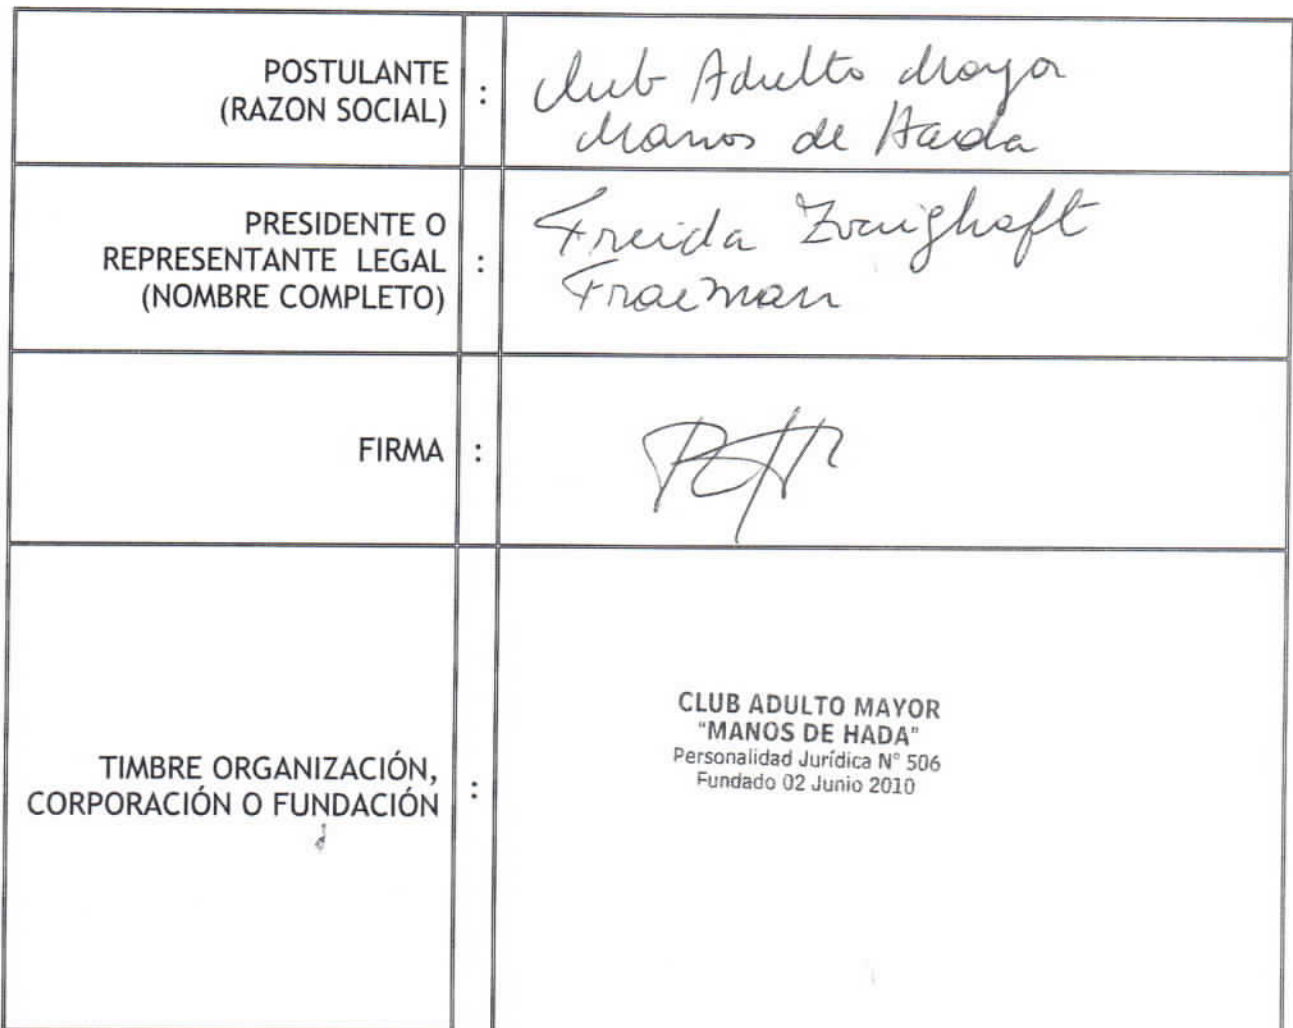 POSTULANTE
(RAZON SOCIAL)
:
Club Adulto Mayor
Manos de Hada
PRESIDENTE O
REPRESENTANTE LEGAL
(NOMBRE COMPLETO)
:
Freida Zwaighaft
Fraiman
FIRMA
:
TIMBRE ORGANIZACIÓN,
CORPORACIÓN O FUNDACIÓN
:
CLUB ADULTO MAYOR
"MANOS DE HADA"
Personalidad Jurídica N° 506
Fundado 02 Junio 2010